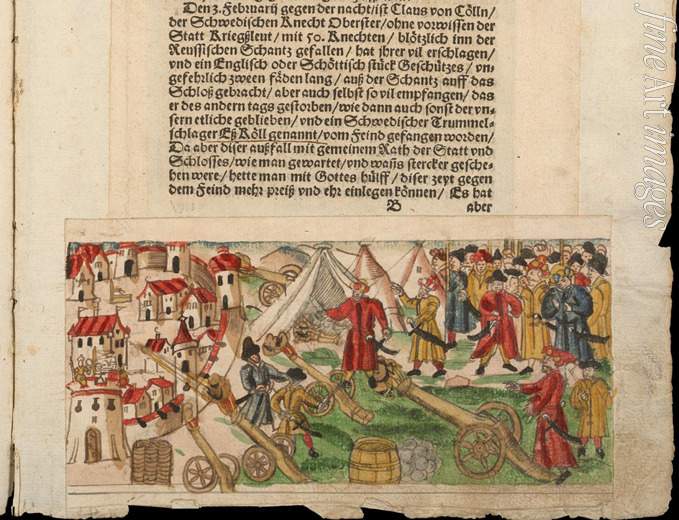 Den 3. Februarij gegen der nacht/ist Claus von Cölln/
der Schwedischen Knecht Oberster/ohne vorwissen der
Statt Kriegßleut/ mit 50. Knechten/ blötzlich inn der
Reussischen Schantz gefallen/ hat jhrer vil erschlagen/
vnd ein Englisch oder Schöttisch stück Geschützes/ vn-
gefehrlich zween fäden lang/ auß der Schantz auff das
Schloß gebracht/ aber auch selbst so vil empfangen/ das
er des andern tags gestorben/ wie dann auch sonst der vn-
sern etliche geblieben/ vnd ein Schwedischer Trummel-
schlager Eß Köll genannt/ vom Feind gefangen worden/
Da aber diser außfall mit gemeinem Rath der Statt vnd
Schlosses/ wie man gewartet/ vnd wañs stercker gesche-
hen were/ hette man mit Gottes hülff/ diser zeyt gegen
dem Feind mehr preiß vnd ehr einlegen können/ Es hat
B aber
fine art images